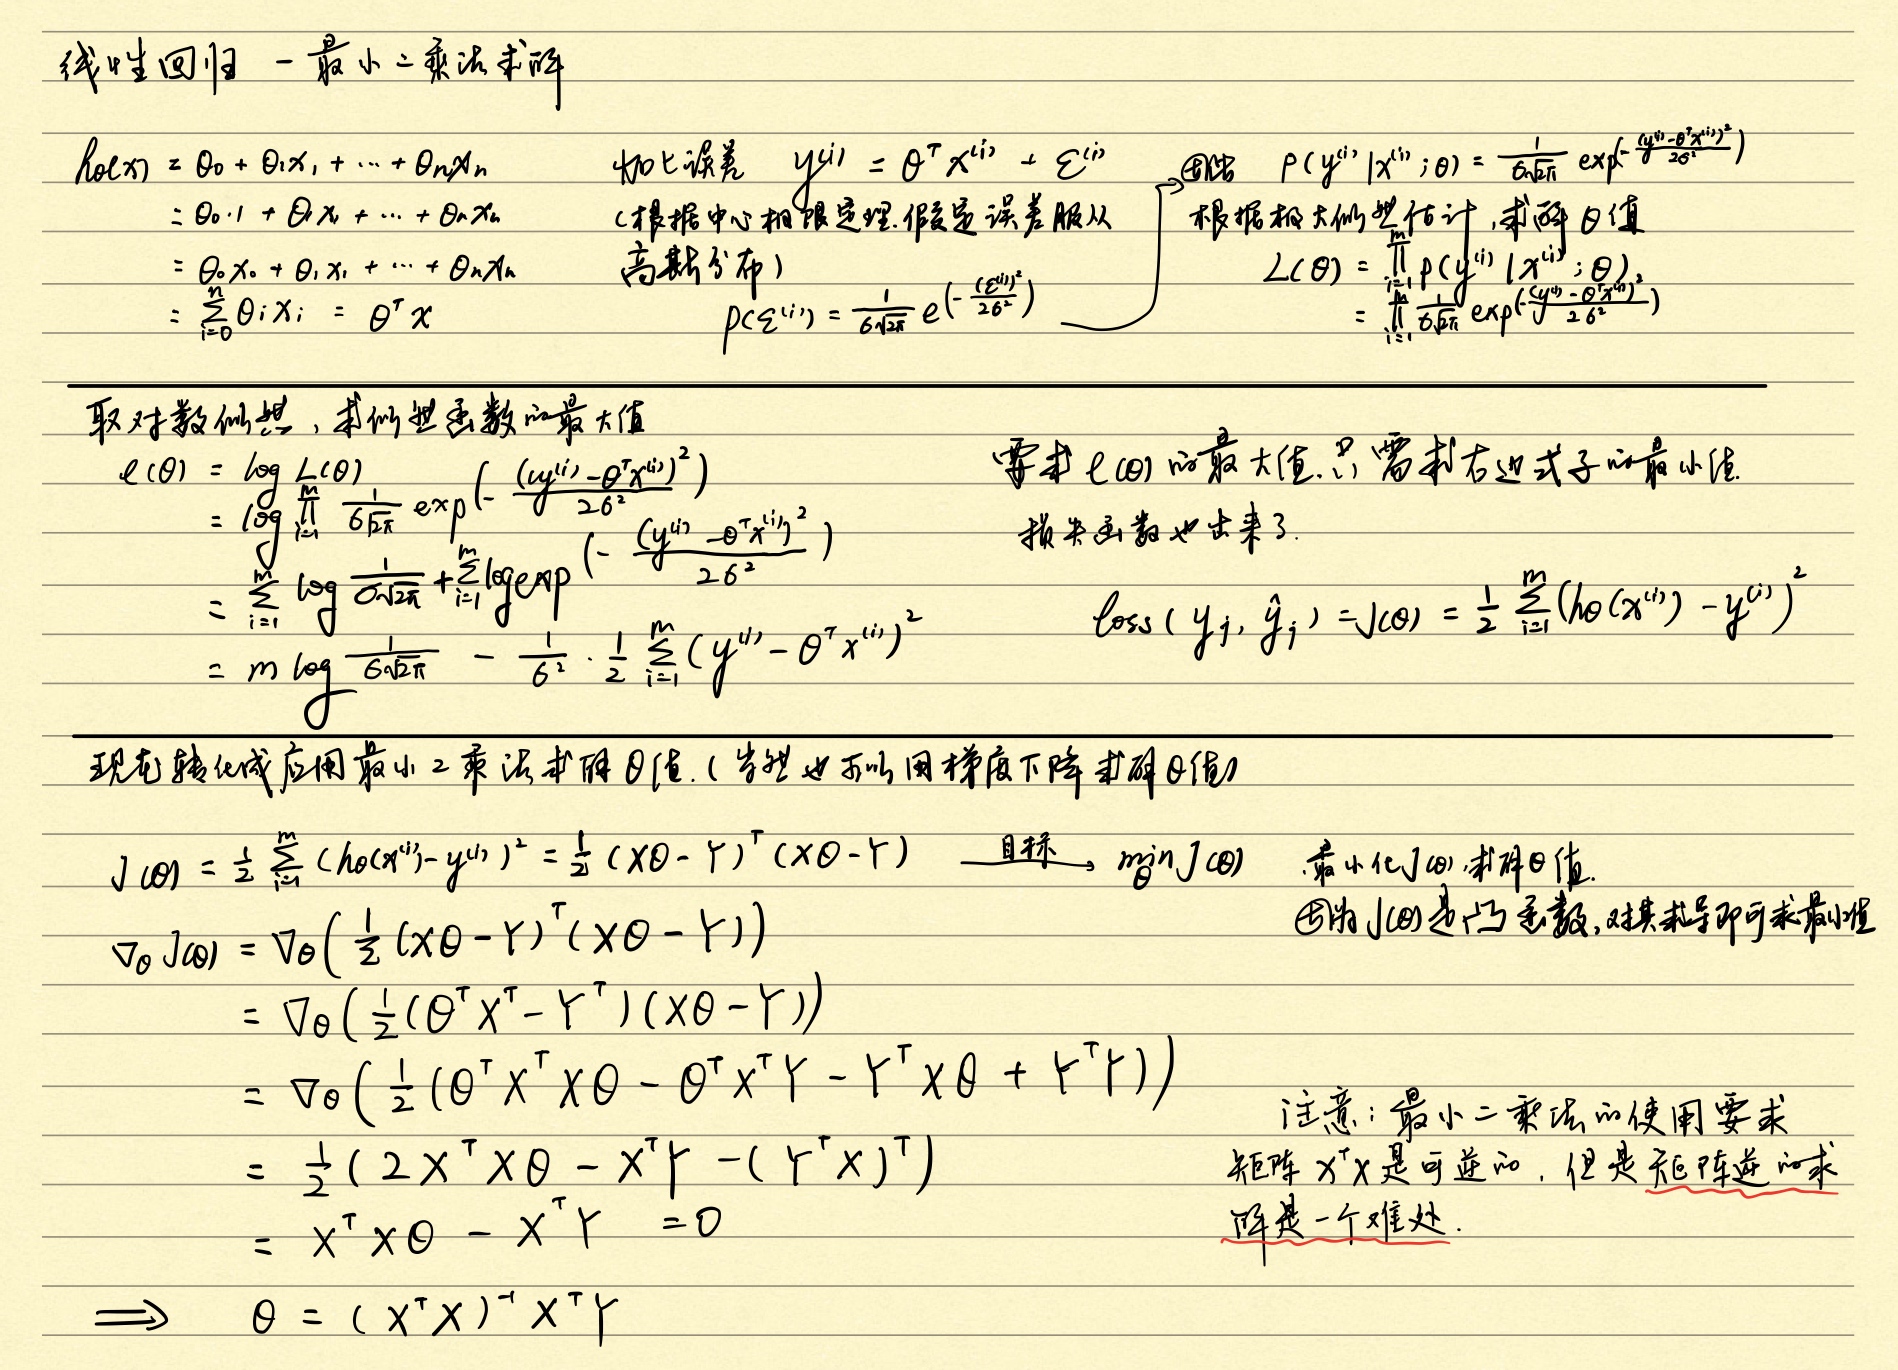 线性回归 - 最小二乘法求解
hθ(x) = θ₀ + θ₁x₁ + ⋯ + θₙxₙ
= θ₀·1 + θ₁x₁ + ⋯ + θₙxₙ
= θ₀x₀ + θ₁x₁ + ⋯ + θₙxₙ
= ∑_{i=0}^{n} θᵢxᵢ = θᵀx
加上误差 y⁽ⁱ⁾ = θᵀx⁽ⁱ⁾ + ε⁽ⁱ⁾
(根据中心极限定理.假定误差服从
高斯分布)
p(ε⁽ⁱ⁾) = 1/(σ√2π) e^(-(ε⁽ⁱ⁾)²/2σ²)
p(y⁽ⁱ⁾|x⁽ⁱ⁾;θ) = 1/(σ√2π) exp(-(y⁽ⁱ⁾-θᵀx⁽ⁱ⁾)²/2σ²)
根据极大似然估计,求解θ值
L(θ) = ∏_{i=1}^{m} p(y⁽ⁱ⁾|x⁽ⁱ⁾;θ)
= ∏_{i=1}^{m} 1/(σ√2π) exp(-(y⁽ⁱ⁾-θᵀx⁽ⁱ⁾)²/2σ²)
取对数似然,求似然函数的最大值
ℓ(θ) = log L(θ)
= log ∏_{i=1}^{m} 1/(σ√2π) exp(-(y⁽ⁱ⁾-θᵀx⁽ⁱ⁾)²/2σ²)
= ∑_{i=1}^{m} log 1/(σ√2π) + ∑_{i=1}^{m} log exp(-(y⁽ⁱ⁾-θᵀx⁽ⁱ⁾)²/2σ²)
= m log 1/(σ√2π) - 1/σ² · 1/2 ∑_{i=1}^{m} (y⁽ⁱ⁾-θᵀx⁽ⁱ⁾)²
要求ℓ(θ)的最大值.只需求右边式子的最小值.
损失函数也出来了.
loss(yⱼ, ŷⱼ) = J(θ) = 1/2 ∑_{i=1}^{m} (hθ(x⁽ⁱ⁾) - y⁽ⁱ⁾)²
现在转化成应用最小2乘法求解θ值.(当然也可以用梯度下降求解θ值)
J(θ) = 1/2 ∑_{i=1}^{m} (hθ(x⁽ⁱ⁾)-y⁽ⁱ⁾)² = 1/2 (Xθ-Y)ᵀ(Xθ-Y) 目标→ min_θ J(θ)
最小化J(θ),求解θ值.
因为J(θ)是凸函数,对其求导即可求最小值
∇θ J(θ) = ∇θ(1/2 (Xθ-Y)ᵀ(Xθ-Y))
= ∇θ(1/2 (θᵀXᵀ-Yᵀ)(Xθ-Y))
= ∇θ(1/2 (θᵀXᵀXθ - θᵀXᵀY - YᵀXθ + YᵀY))
= 1/2 (2XᵀXθ - XᵀY - (YᵀX)ᵀ)
= XᵀXθ - XᵀY = 0
⟹ θ = (XᵀX)⁻¹XᵀY
注意:最小二乘法的使用要求
矩阵XᵀX是可逆的.但是矩阵逆的求
解是一个难处.